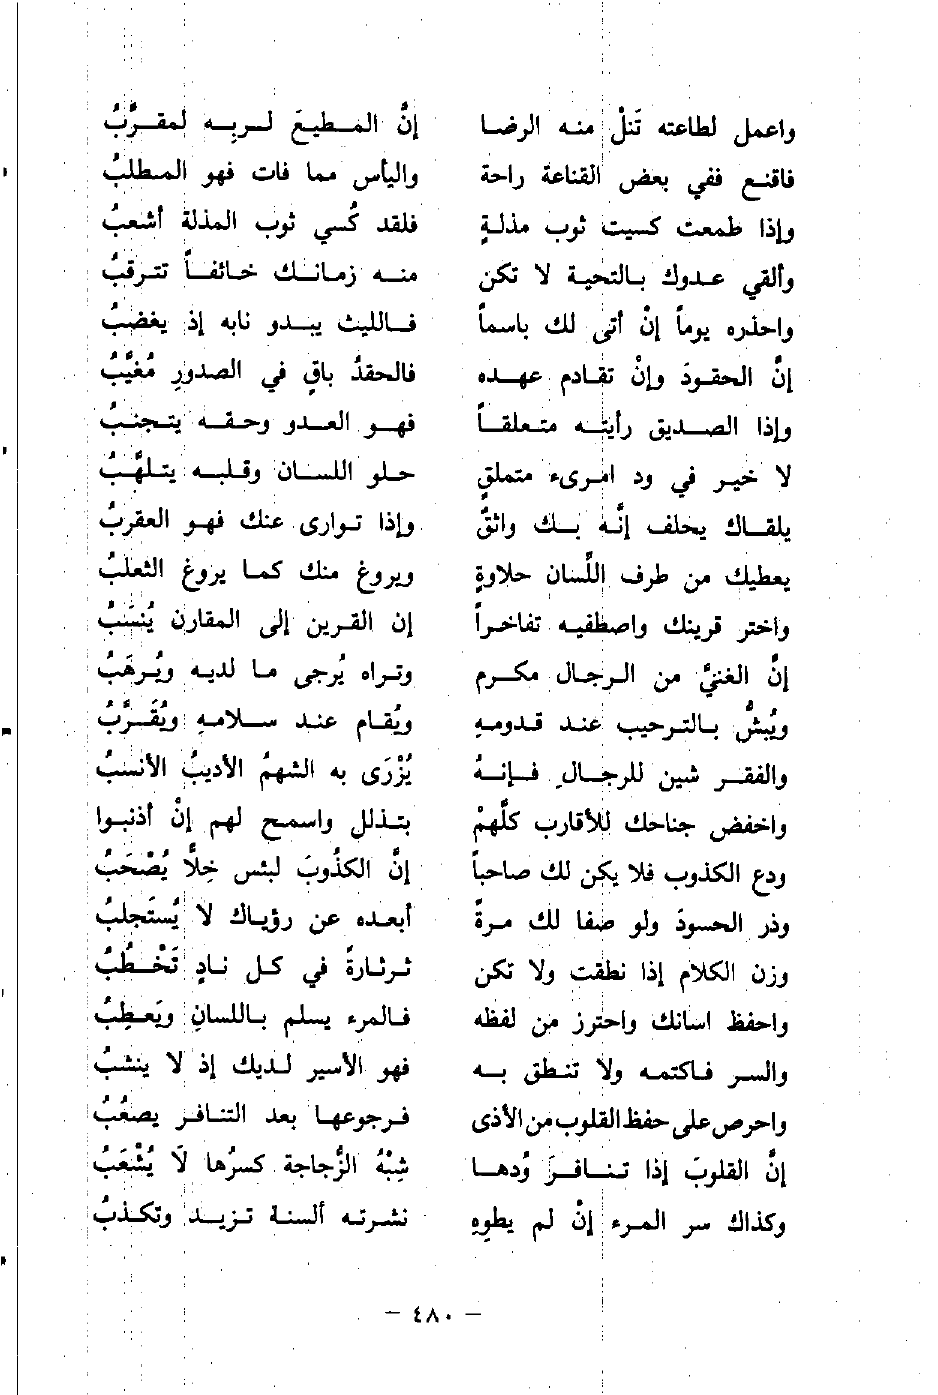 واعمل لطاعته تَنلْ منه الرضا إنَّ المطيعَ لربِه لمقرَّبُ
فاقنع ففي بعض القناعة راحة واليأس مما فات فهو المطلبُ
وإذا طمعت كسيت ثوب مذلةٍ فلقد كُسي ثوب المذلة أشعبُ
وألقي عدوك بالتحية لا تكن منه زمانك خائفاً تترقبُ
واحذره يوماً إنْ أتى لك باسماً فالليث يبدو نابه إذ يغضبُ
إنَّ الحقودَ وإنْ تقادم عهده فالحقدُ باقٍ في الصدورِ مُغيَّبُ
وإذا الصديق رأيته متعلقاً فهو العدو وحقه يتجنبُ
لا خير في ود امرىء متملقٍ حلو اللسان وقلبه يتلهَّبُ
يلقاك يحلف إنَّه بك واثقٌ وإذا توارى عنك فهو العقربُ
يعطيك من طرف اللَّسان حلاوةٍ ويروغ منك كما يروغ الثعلبُ
واختر قرينك واصطفيه تفاخراً إن القرين إلى المقارن يُنسَبُ
إنَّ الغنيَّ من الرجال مكرم وتراه يُرجى ما لديه ويُرهَبُ
ويُبشُّ بالترحيب عند قدومهِ ويُقام عند سلامهِ ويُقَرَّبُ
والفقر شين للرجالِ فإنهُ يُزْرَى به الشهمُ الأديبُ الأنسبُ
واخفض جناحك للأقارب كلَّهمْ بتذلل واسمح لهم إنْ أذنبوا
ودع الكذوب فلا يكن لك صاحباً إنَّ الكذُوبَ لبئس خِلاًّ يُصْحَبُ
وذر الحسودَ ولو صفا لك مرةً أبعده عن رؤياك لا يُستَجلبُ
وزن الكلام إذا نطقت ولا تكن ثرثارةً في كل نادٍ تَخْطُبُ
واحفظ اسانك واحترز من لفظه فالمرء يسلم باللسانِ ويَعطِبُ
والسر فاكتمه ولا تنطق به فهو الأسير لديك إذ لا ينشبُ
واحرص على حفظ القلوب من الأذى فرجوعها بعد التنافر يصعُبُ
إنَّ القلوبَ إذا تنافرَ وُدها شِبْهُ الزُّجاجة كسرُها لَا يُشْعَبُ
وكذاك سر المرء إنْ لم يطوِهِ نشرته ألسنة تزيد وتكذبُ
— ٤٨٠ —